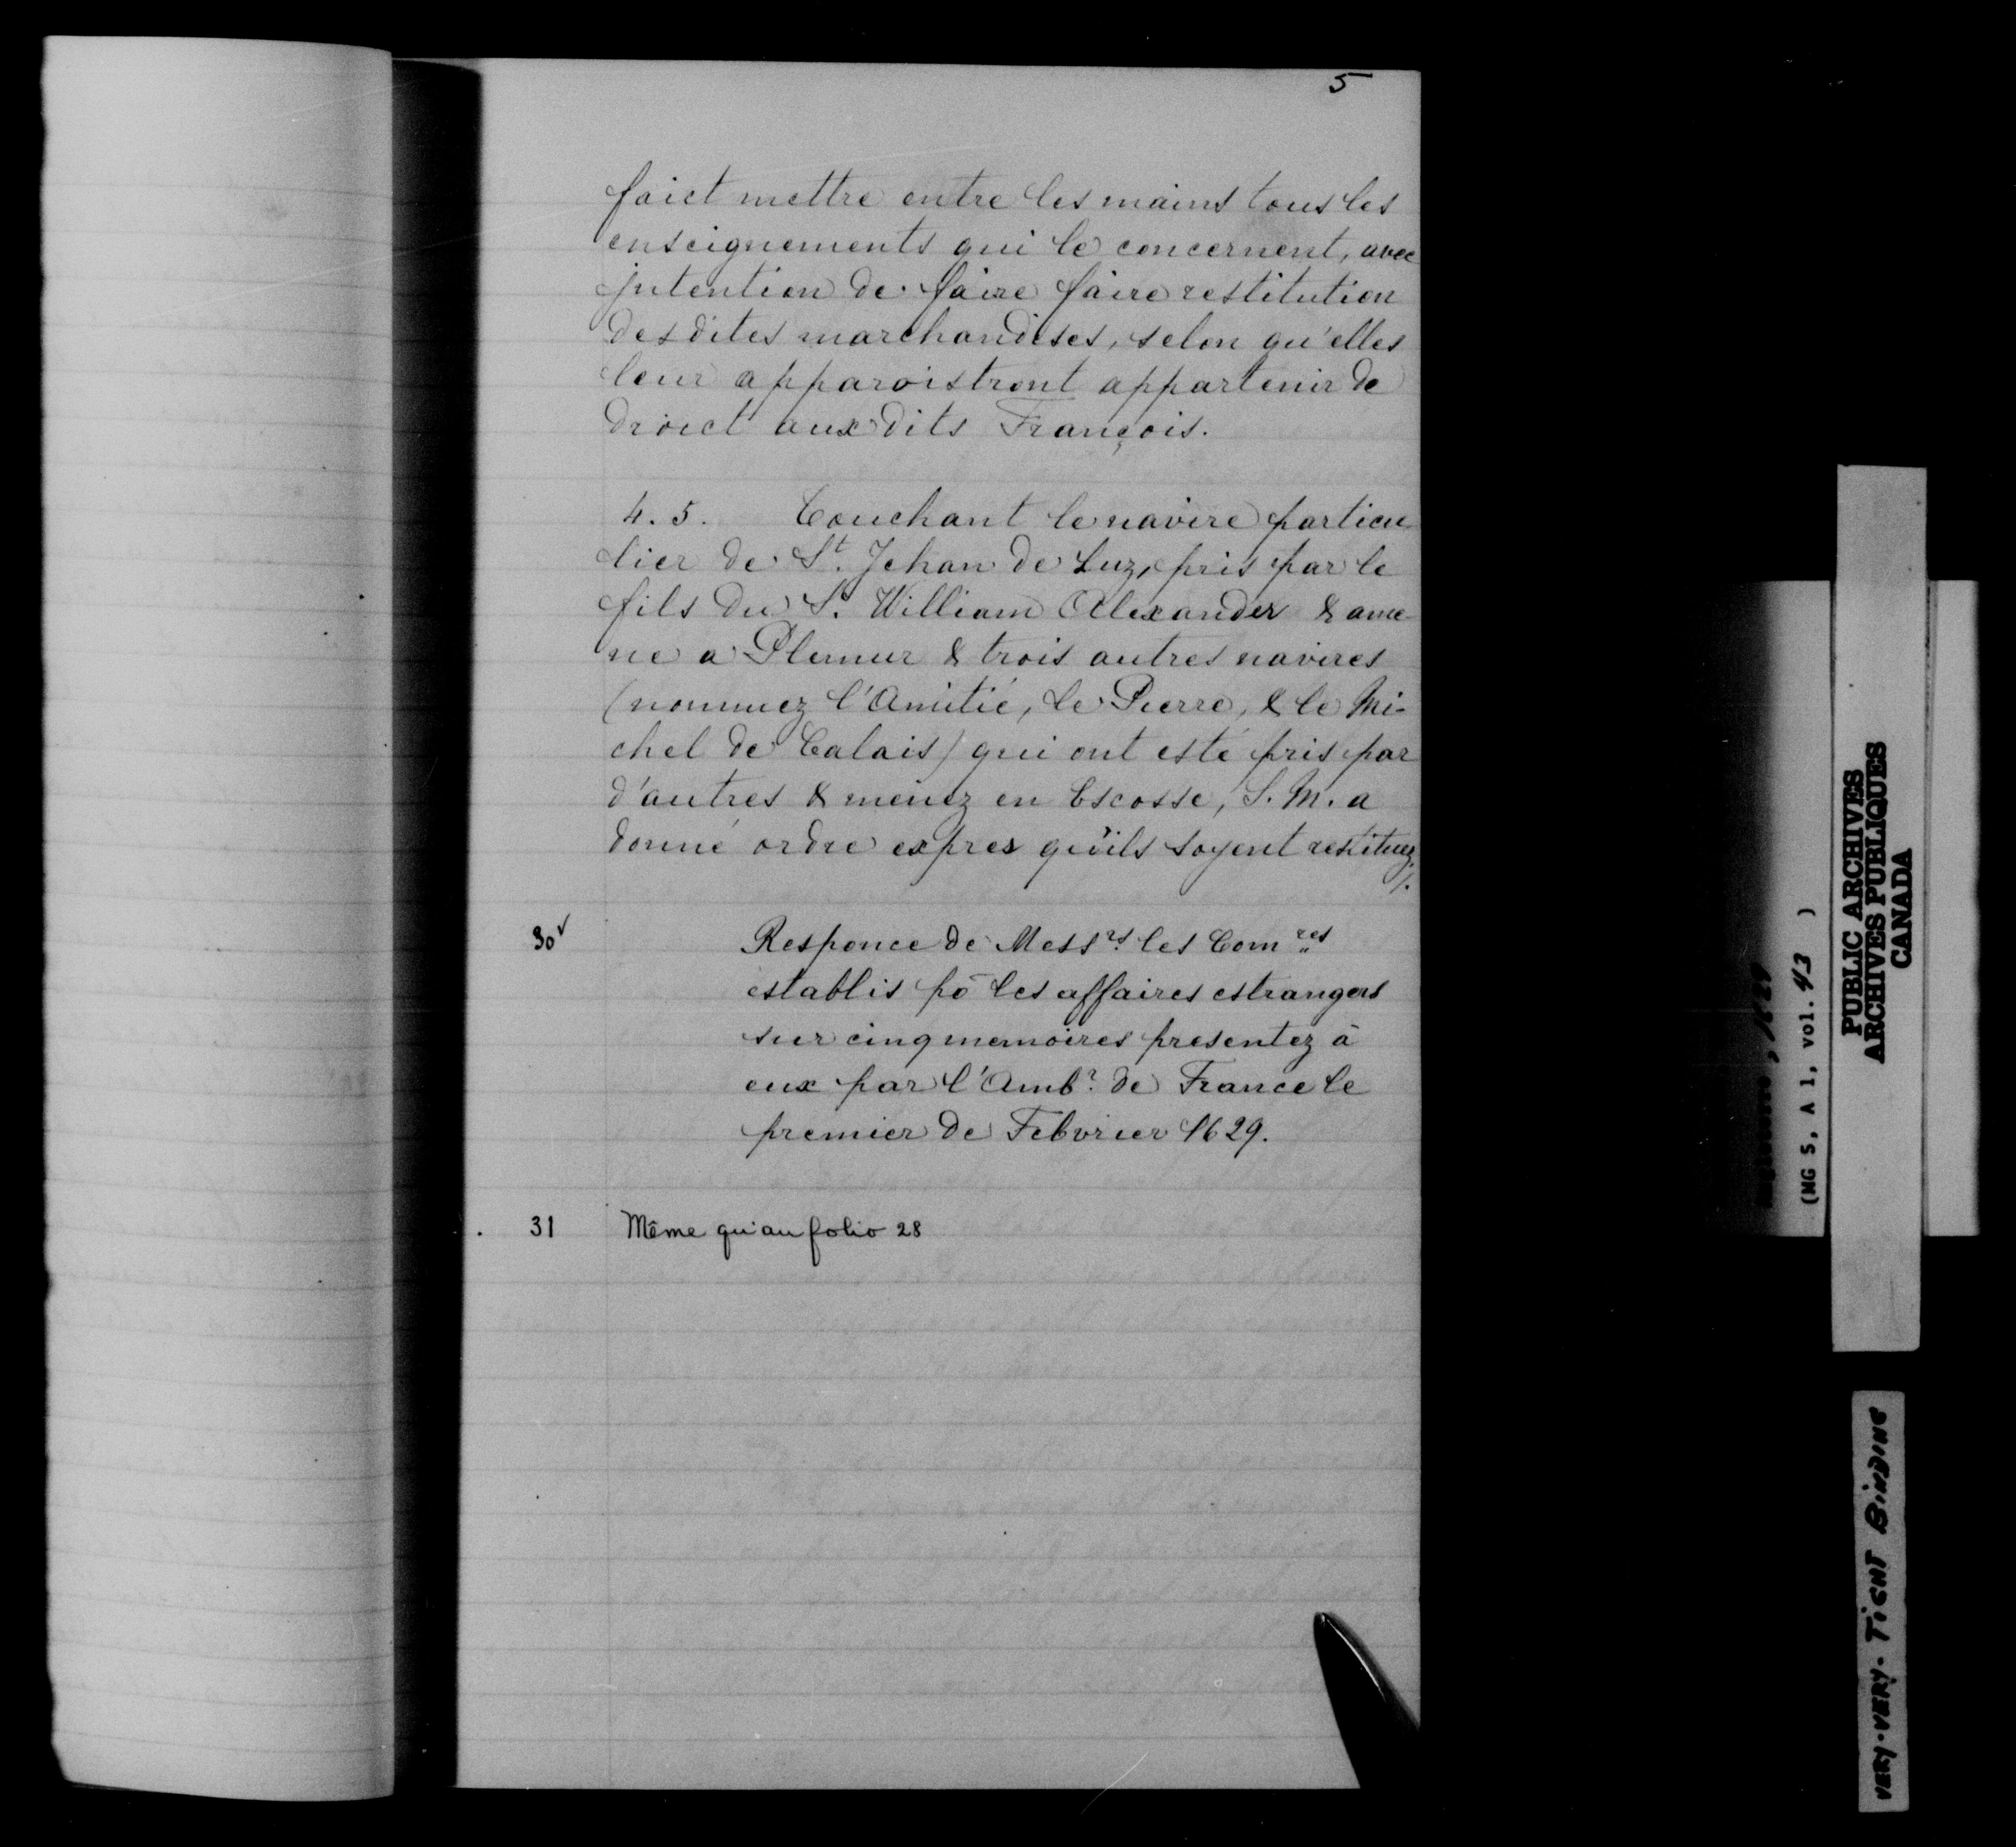 5
faict mettre entre les mains tous les
enseignements qui le concernent, avec
jntention de faire faire restitution
des dites marchandises, selon qu'elles
leur apparoistront appartenir de
droict aux dits François.
4. 5. Touchant le navire particu
lier de St. Jehan de Luz, pris par le
fils du Sr. William Alexander & ame
ne a Plemur & trois autres navires
(nommez l'Amitié, le Pierre, & le Mi-
chel de Calais) qui ont esté pris par
d'autres & menez en Escosse, S. M. a
donné ordre expres qu'ils soyent restituez
/.
30v Responce de Messrs. les Comres
establis pō les affaires estrangers
sur cinq memoires presentez à
eux par l'Ambr. de France le
premier de Febvrier 1629.
31 Même qu'au folio 28
, 1629
(MG 5, A 1, vol. 43 )
PUBLIC ARCHIVES
ARCHIVES PUBLIQUES
CANADA
VERY-VERY-TIGHT BINDING